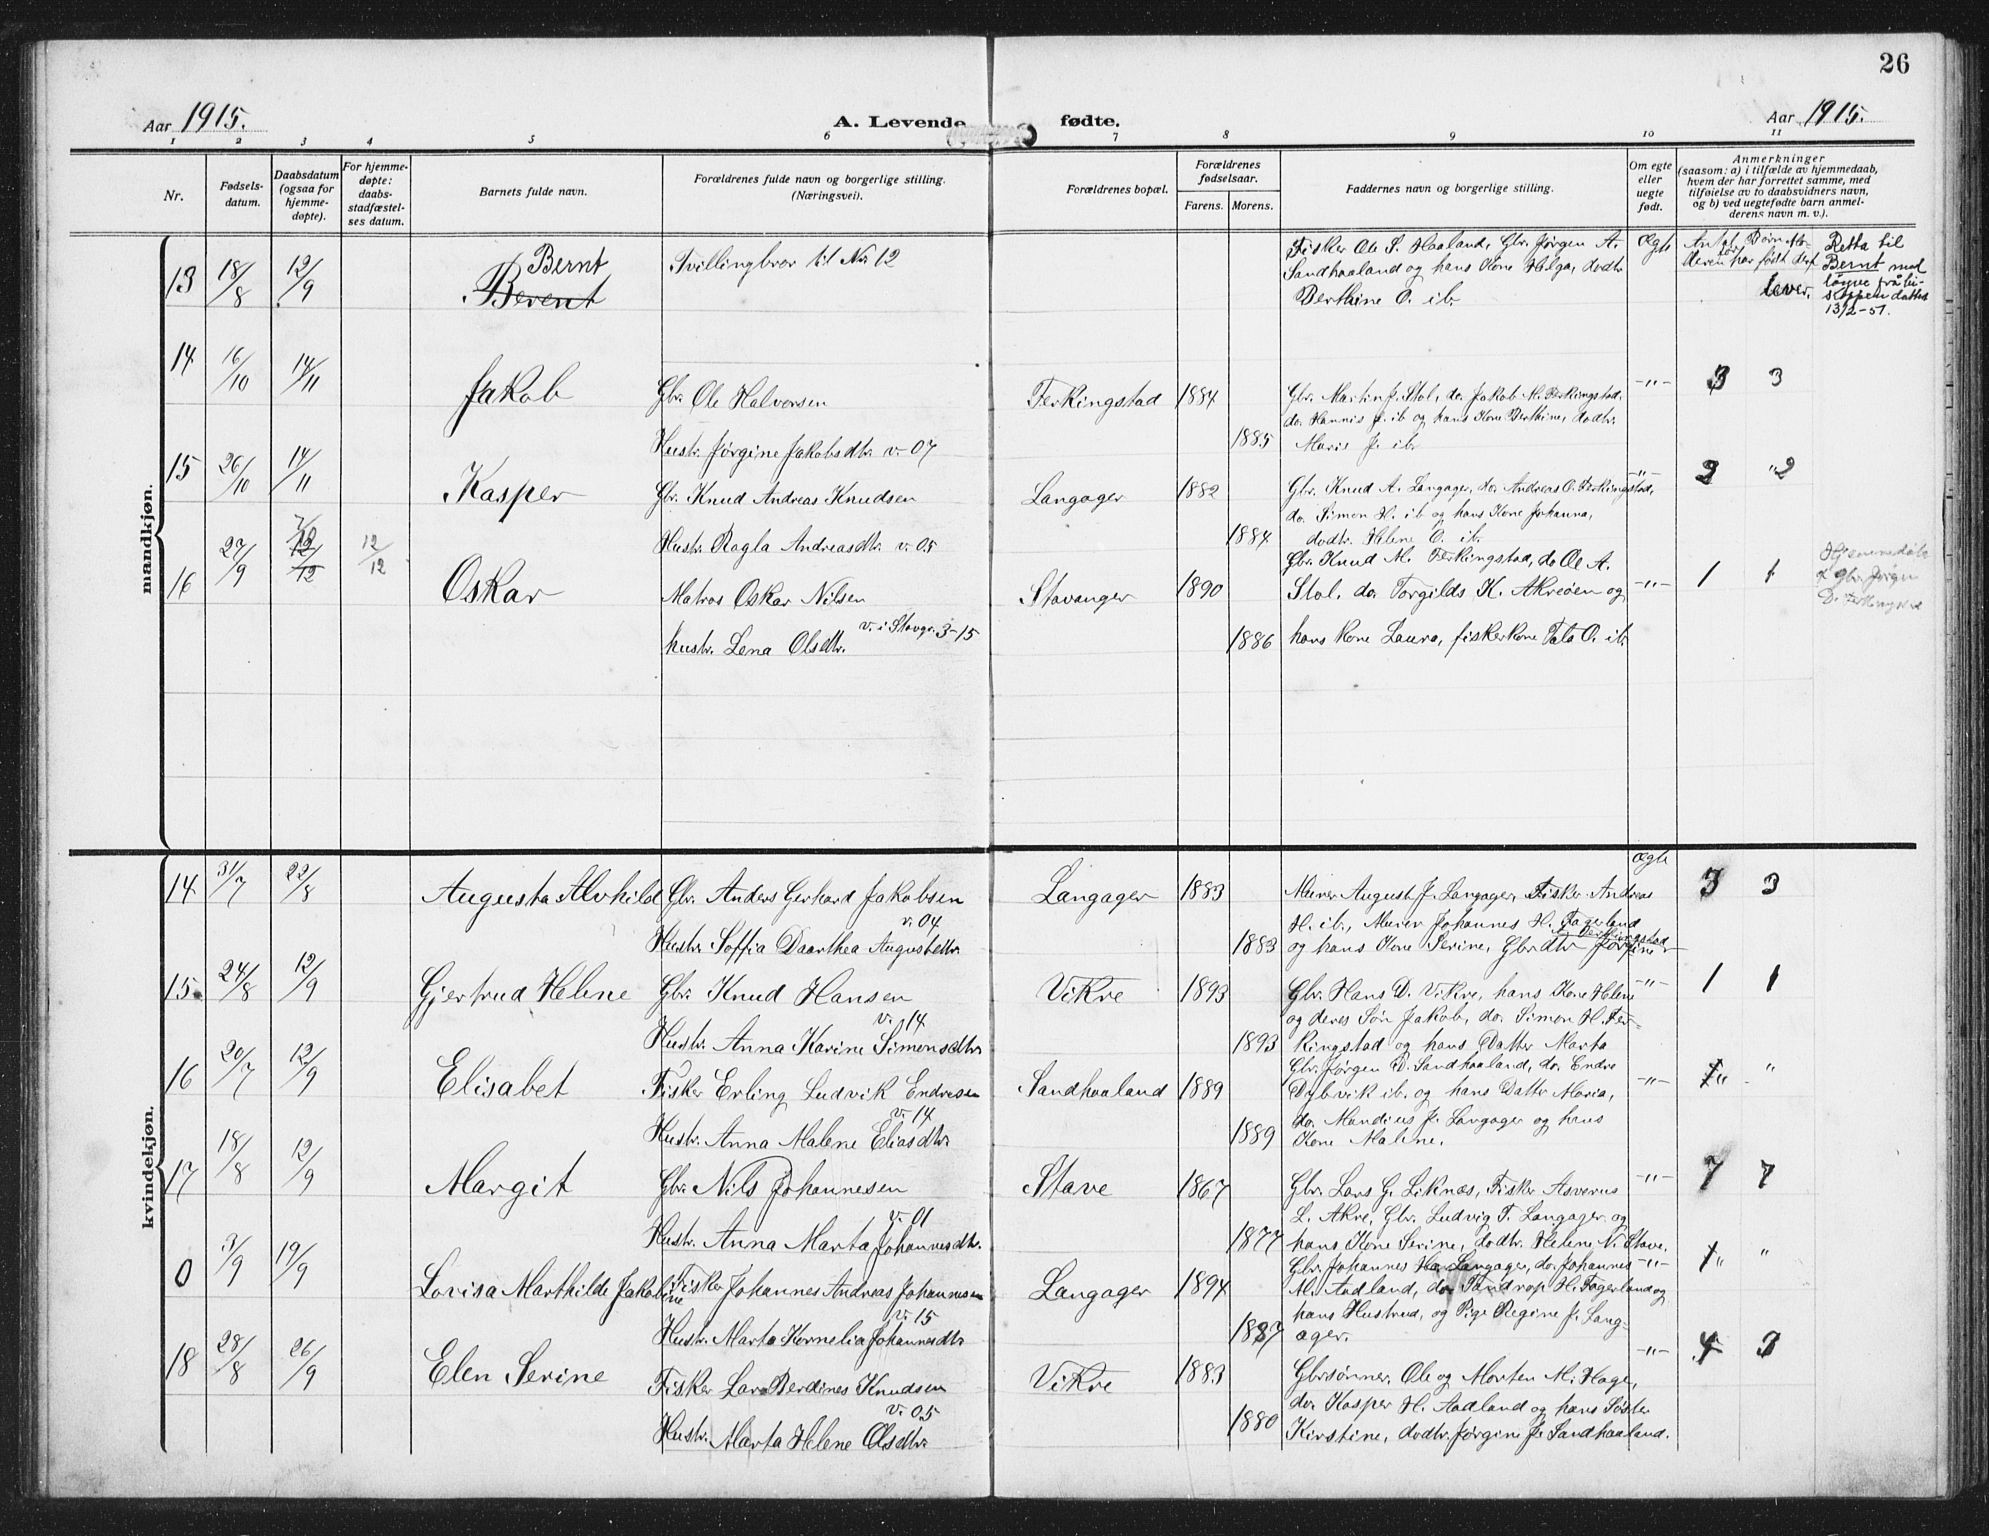 26
Aar 1915.
A. Levende fødte.
Aar 1915.
1 2 3 4 5 6 7 8 9 10 11
Nr.
Fødsels-
datum.
Daabsdatum
(ogsaa for
hjemme-
døpte).
For hjemme-
døpte:
daabs-
stadfæstel-
ses datum.
Barnets fulde navn.
Forældrenes fulde navn og borgerlige stilling.
(Næringsvei).
Forældrenes bopæl.
Forældrenes
fødselsaar.
Farens. Morens.
Faddernes navn og borgerlige stilling.
Om egte
eller
uegte
født.
Anmerkninger
(saasom: a) i tilfælde av hjemmedaab,
hvem der har forrettet samme, med
tilføielse av to daabsvidners navn,
og b) ved uegtefødte barn anmel-
derens navn m. v.).
mandkjøn.
13 18/8 12/9 Bernt
Berent
Tvillingbror til Nr. 12
Fisker Ole S. Haaland, Gbr. Jørgen A.
Sandhaaland og hans Kone Helga, dodtr.
Berthine O. ib.
Ægte
Moderen har født
lever.
Retta til
Bernt med
løyve frå bi-
skoppen datert
13/2-51.
14 16/10 14/11 Jakob
Gbr. Ole Halvorsen
Hustr. Jørgine Jakobsdtr. v. 07
Ferkingstad 1884
1885
Gbr. Martin J. Stol, do. Jakob M. Ferkingstad,
do. Hannis J. ib og hans Kone Berthine, dodtr.
Maris J. ib.
-"- 3 3
15 26/10 14/11 Kasper
Gbr. Knud Andreas Knudsen
Hustr. Ragla Andreasdtr. v. 05
Langager 1882
1884
Gbr. Knud A. Langager, do. Andreas O. Ferkingstad,
do. Simon H. ib og hans Kone Johanna,
dodtr. Helene O. ib.
-"- 2 "2
16 27/9 12/12 12/12 Oskar
Matros Oskar Nilsen
Hustr. Lena Olsdtr. v. i Stavgr. 3-15
Stavanger 1890
1886
Gbr. Knud M. Ferkingstad, do Ole A.
Stol, do. Torgilds K. Akreøen og
hans Kone Laura, fiskerkone Tala O. ib.
-"- 1 1
Hjemmedøbt
Gbr. Jørgen
kvindekjøn.
14 31/7 22/8 Augusta Alvhild
Gbr. Anders Gerhard Jakobsen
v. 04
Hustr. Soffia Daarthea Augustdtr.
Langager 1883
1883
Murer August J. Langager, Fisker Andreas
H. ib., Murer Johannes H. Fagerland
og hans Kone Serine, Gbrdtr Jørgine Ferkingstad
Ægte 3 3
15. 24/8 12/9 Gjertrud Helene
Gbr. Knud Hansen
v. 14
Hustr. Anna Karine Simonsdtr.
Vikre 1893
1893
Gbr. Hans D. Vikre, hans Kone Helene
og deres Søn Jakob, do. Simon H. Fer-
kingstad og hans Datter Marta
-"- 1 1
16 20/7 12/9 Elisabet
Fisker Erling Ludvik Endresen
v. 14
Hustr. Anna Malene Eliasdtr.
Sandhaaland 1889
1889
Gbr. Jørgen D. Sandhaaland, do. Endre
Dybvik ib. og hans Dattr. Maria,
do. Mandius J. Langager og hans
Kone Malene.
-"- 1" "
17 18/8 12/9 Margit
Gbr. Nils Johannesen
v. 01
Hustr. Anna Marta Johannesdtr.
Stave 1867
1877
Gbr. Lars G. Liknæs, Fisker Asverus
L. Akre, Gbr. Ludvig T. Langager og
hans Kone Serine, dodtr. Helene N. Stave.
-"- 7 7
0 3/9 19/9 Lovisa Marthilde Jakobine
Fisker Johannes Andreas Johannesen
v. 15
Hustr. Marta Kornelia Johannesdtr.
Langager 1894
1887
Gbr. Johannes H. Langager, do. Johannes
M. Aadland, do. Tandrop H. Fagerland og
hans Hustrud, og Pige Regine J. Lang-
ager.
-"- 1" "
18 28/8 26/9 Elen Serine
Fisker Lars Berdines Knudsen
v. 05
Hustr. Marta Helene Olsdtr.
Vikre 1883
1880
Gbrsønner. Ole og Morten M. Hage,
do. Kasper H. Aadland og hans Søster
Kirstine, dodtr. Jørgine J. Sandhaaland.
-"- 4 3